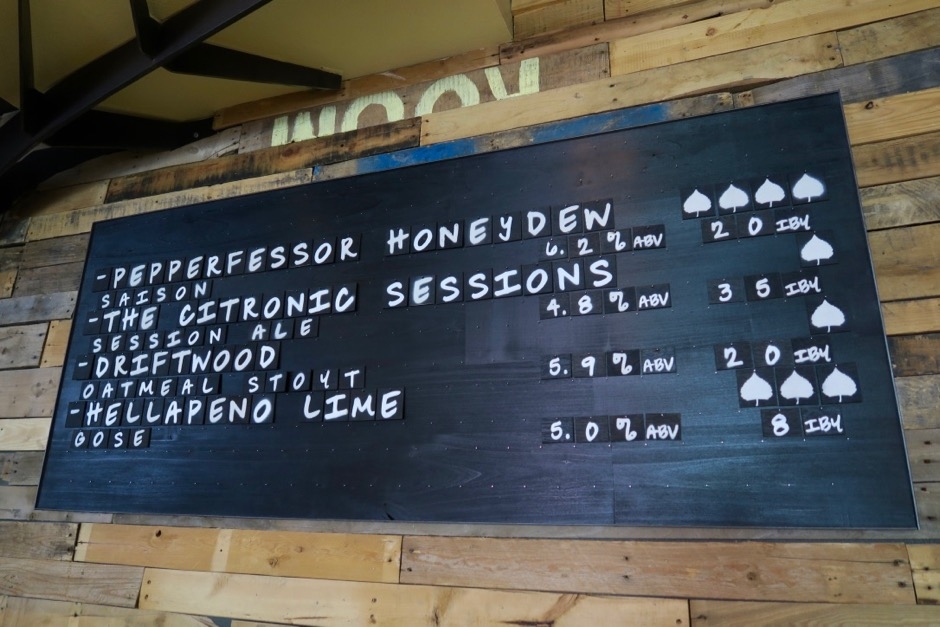 -PEPPERFESSOR HONEYDEW
SAISON 6.2% ABV 20 IBU
-THE CITRONIC SESSIONS
SESSION ALE 4.8% ABV 35 IBU
-DRIFTWOOD
OATMEAL STOUT 5.9% ABV 20 IBU
-HELLAPENO LIME
GOSE 5.0% ABV 8 IBU